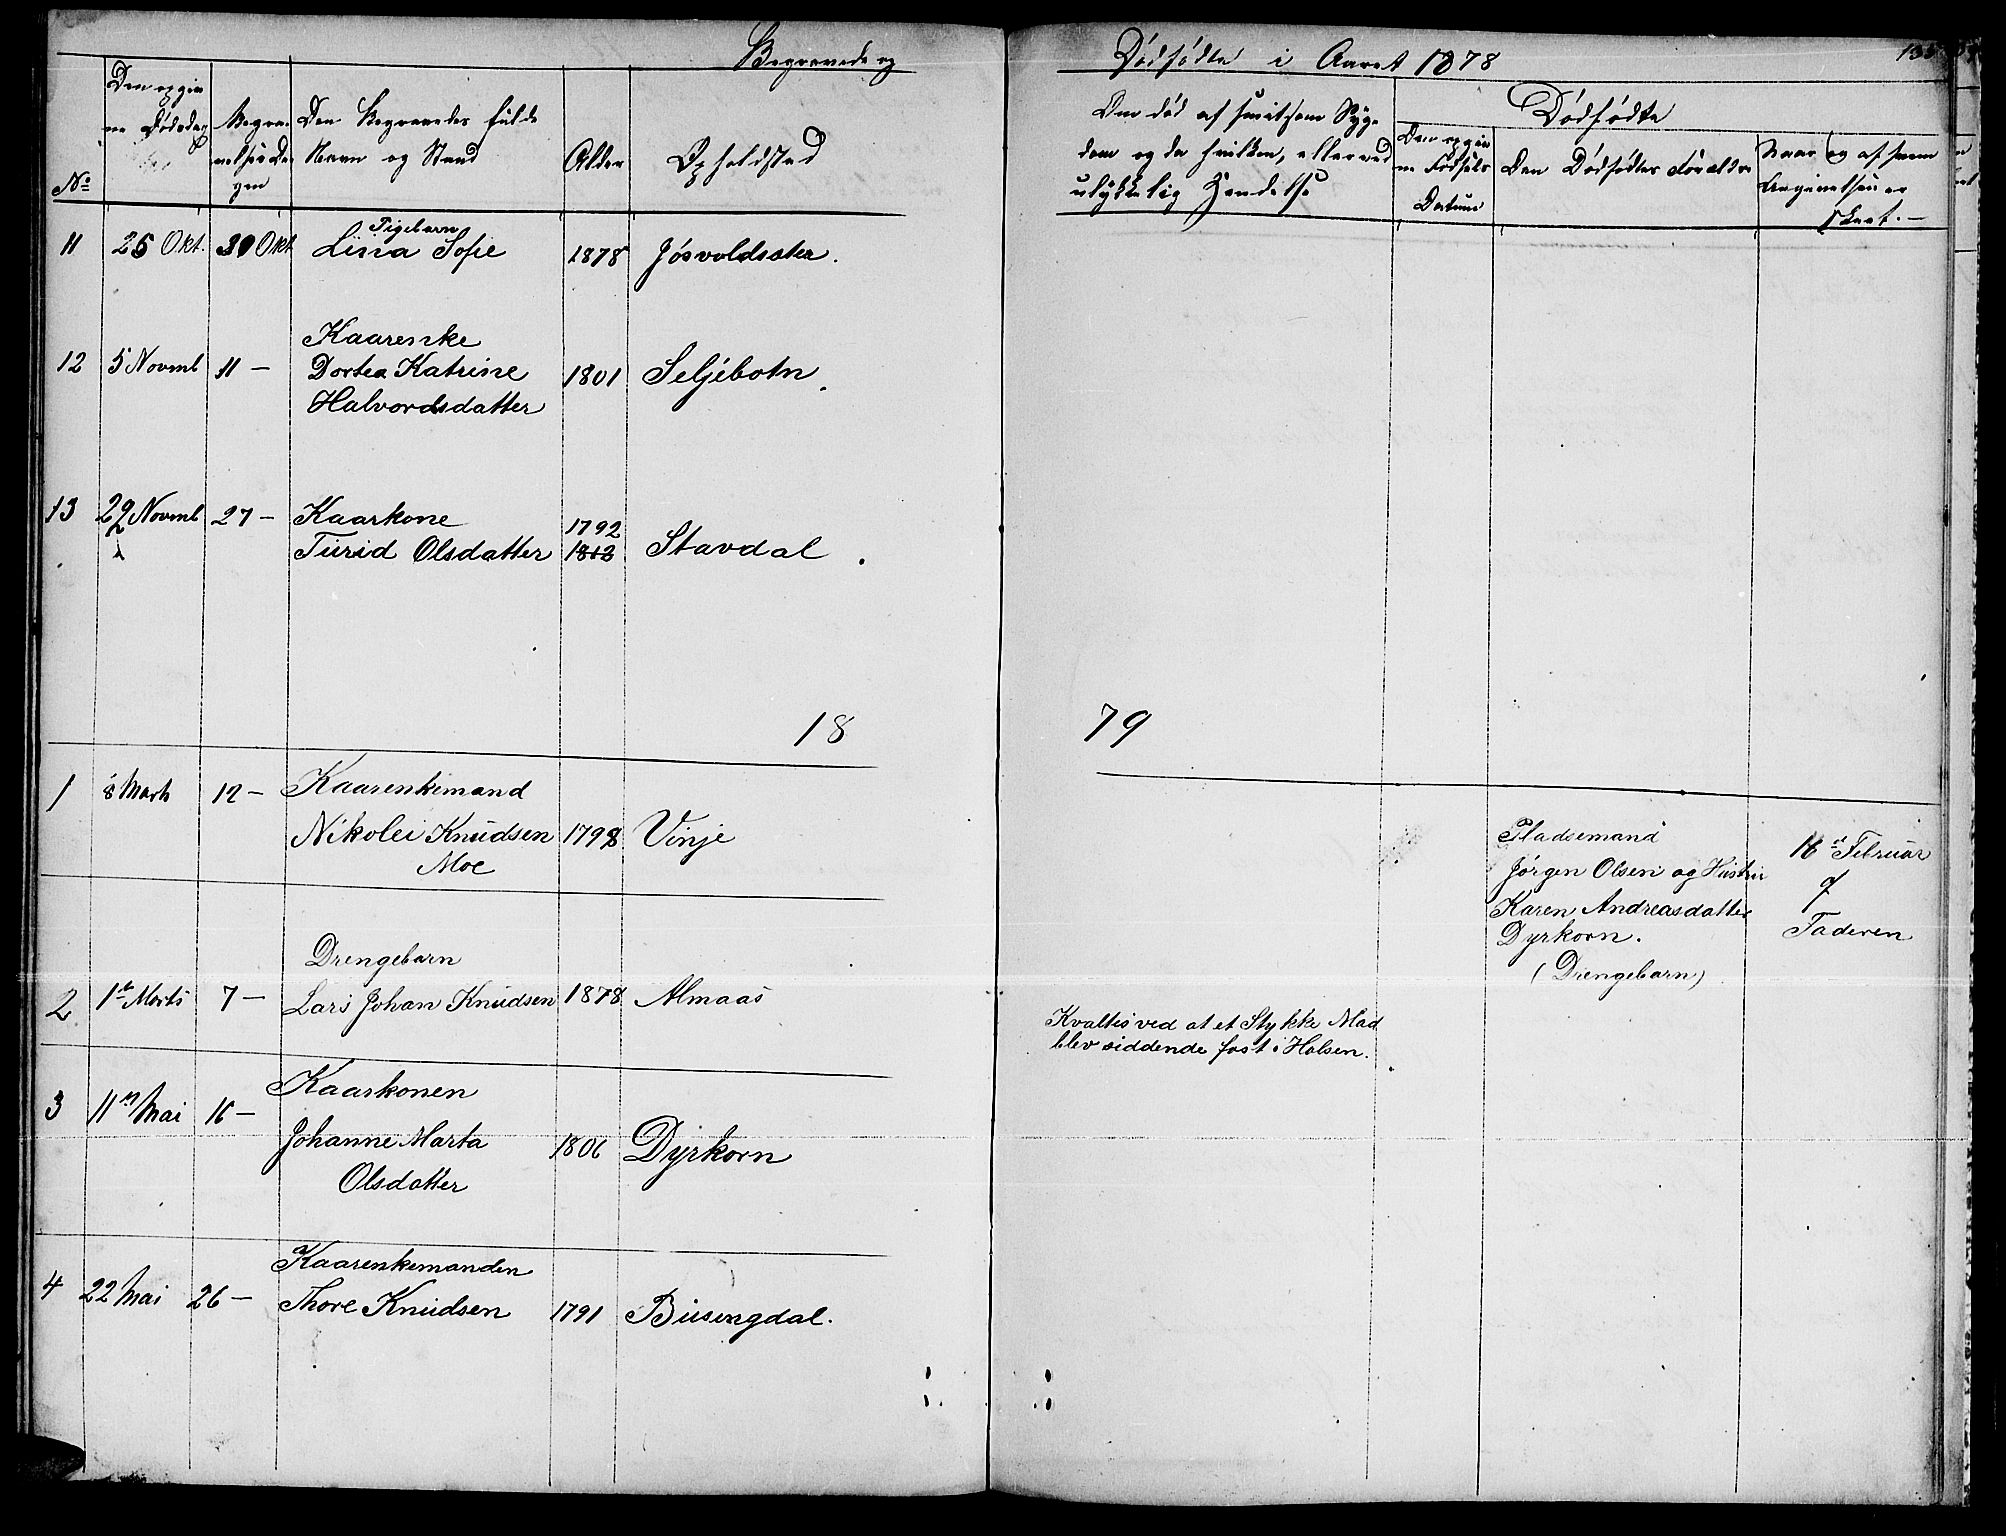 Begravede og Dødfødte i Aaret 1878
No
Den opgiv
ne Dødsdag
Begra-
velsesda
gen
Den Begravedes fulde
Navn og Stand
Alder
Opholdsted
Om død af smitsom Syg-
dom og da hvilken, eller ved
ulykkelig Hændelse
Dødfødte
Den opgiv
ne Fødsels
Datum
Den Dødfødtes Forældre
Naar og af hvem
Angivelsen er
skeet.-
11 25 Okt. 30 Okt. Pigebarn
Lina Sofie 1878 Jøsvoldsæter.
Kaarenke
12 5 Novmb 11 - Dortea Katrine 1801 Seljebotn
Halvordsdatter
13 22 Novmb 27 - Kaarkone
Turid Olsdatter 1792 1812 Stavdal
18 79
1 8 Marts 12 - Kaarenkemand
Nikolei Knudsen 1798 Vinje
Moe
Pladsemand
Jørgen Olsen og Hustru
Karen Andreasdatter
Dyrkorn.
(Drengebarn)
18de Februar
af
Faderen
Drengebarn
2 1te Marts 7 - Lars Johan Knudsen 1878 Almaas
Kvaltes ved at et Stykke Mad
blev siddende fast i Halsen.
3 11te Mai 16 - Kaarkonen
Johanne Marta 1806 Dyrkorn
Olsdatter
Kaarenkemanden
4 22 Mai 26 - Thore Knudsen 1791 Busengdal.